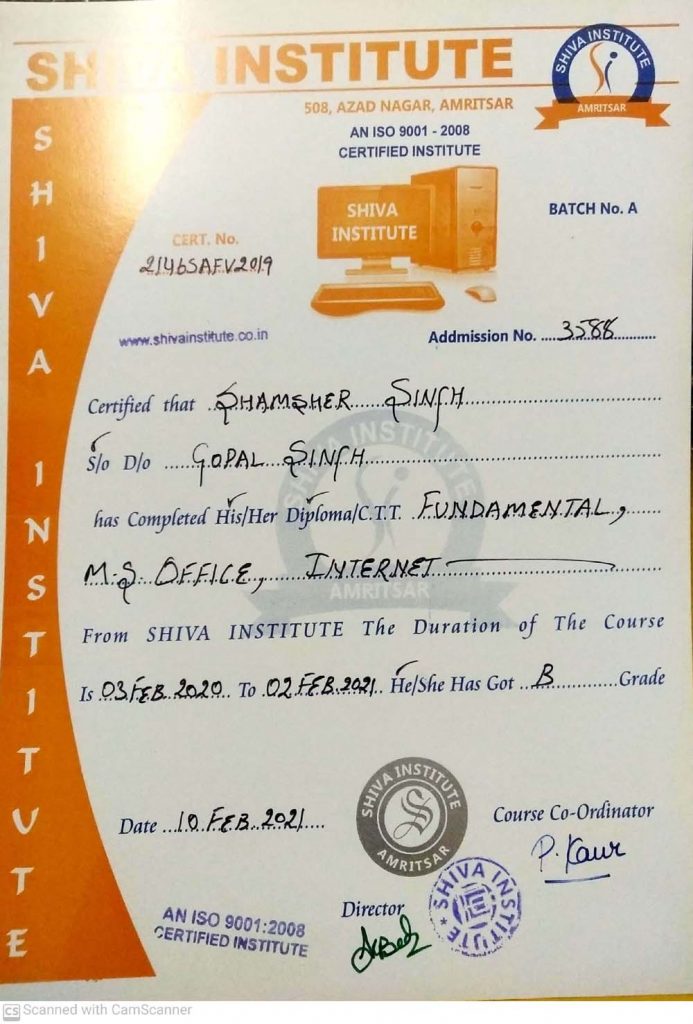 SHIVA INSTITUTE
SHIVA INSTITUTE
AMRITSAR
508, AZAD NAGAR, AMRITSAR
AN ISO 9001 - 2008
CERTIFIED INSTITUTE
SHIVA INSTITUTE
SHIVA
INSTITUTE
BATCH No. A
CERT. No.
2146SAFV2019
www.shivainstitute.co.in
Addmission No. ....3588............
Certified that ..SHAMSHER SINGH
S/o D/o ....GOPAL SINGH
has Completed His/Her Diploma/C.T.T. FUNDAMENTAL,
M.S. OFFICE, INTERNET
SHIVA INSTITUTE
AMRITSAR
From SHIVA INSTITUTE The Duration of The Course
Is 03 FEB 2020 To 02 FEB. 2021 He/She Has Got ..B............Grade
Date ..10 FEB 2021....
SHIVA INSTITUTE
AMRITSAR
Course Co-Ordinator
P. Kaur
Director
SHIVA INSTITUTE
AN ISO 9001:2008
CERTIFIED INSTITUTE
CS Scanned with CamScanner